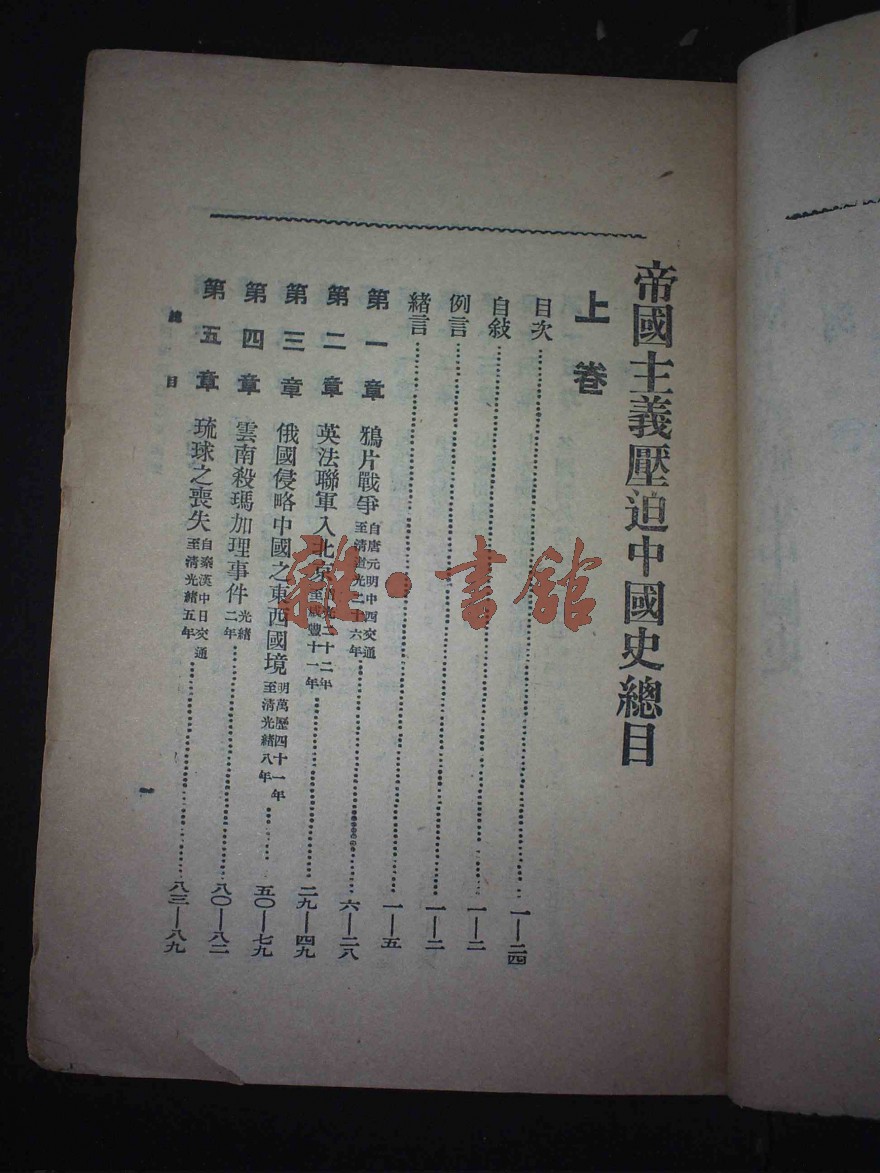 帝國主義壓迫中國史總目
上卷
目次 一—二四
自敍 一—二
例言 一—二
緒言 一—五
第一章 鴉片戰爭 自唐元明中西交通至清道光二十六年 六—二八
第二章 英法聯軍入北京 光二十二年至咸豐十一年 二九—四九
第三章 俄國侵略中國之東西國境 明萬歷四十一年至清光緒八年 五〇—七九
第四章 雲南殺瑪加理事件 光緒二年 八〇—八二
第五章 琉球之喪失 自秦漢中日交通至清光緒五年 八三—八九
總目
一
雜·書館